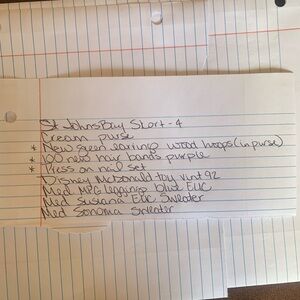 St Johns Bay Short - 4
Cream purse
* New green earring wood hoops (in purse)
* 100 new hair bands purple
* Press on nail set
Disney McDonald toy vint 92
Med MPG leggings blue EUC
Med Susana EUC Sweater
Med Sonoma Sweater